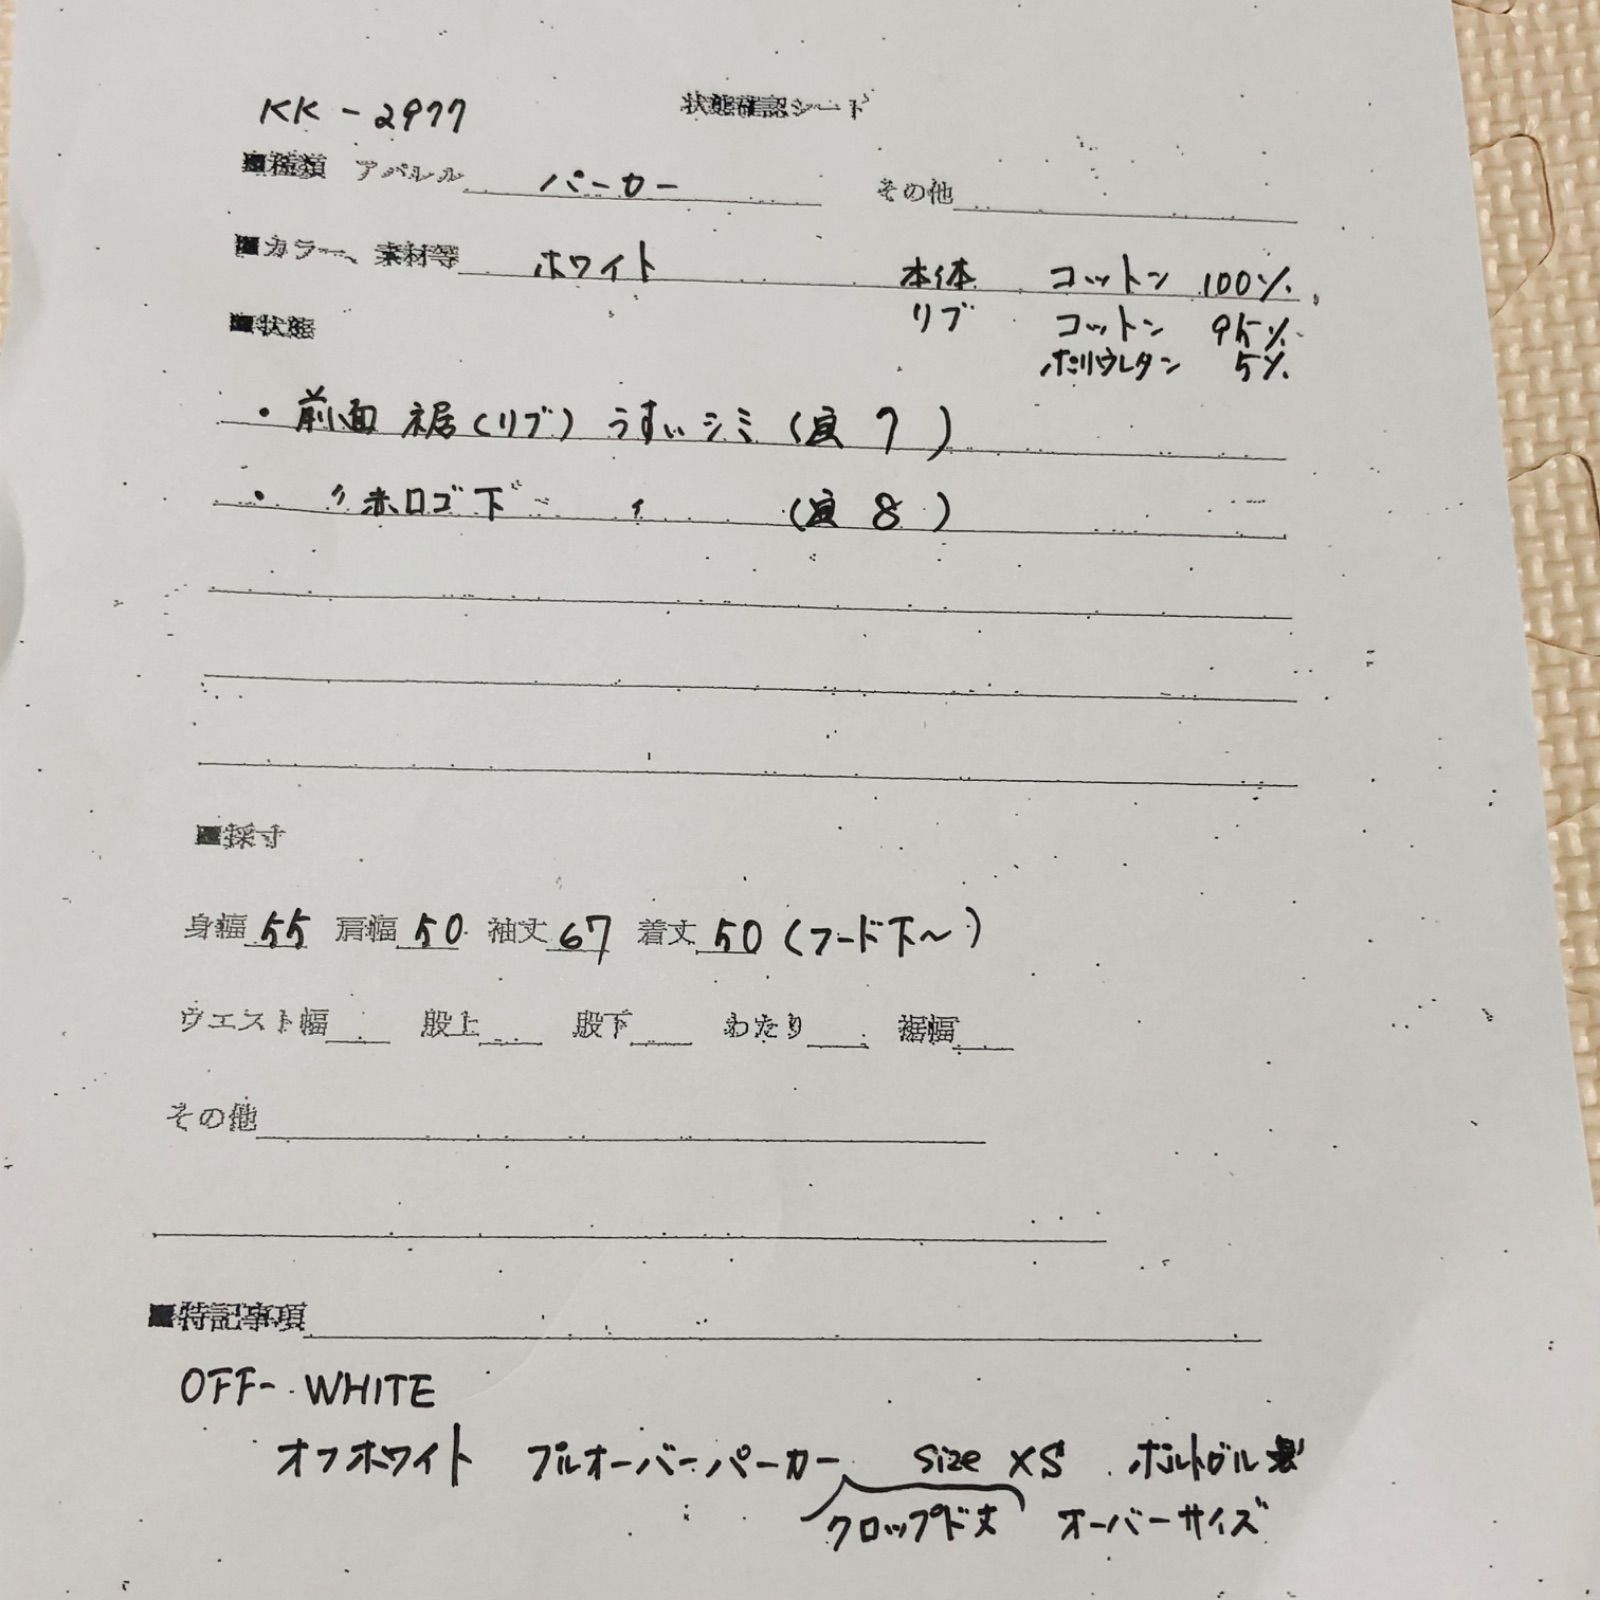 KK-2977 状態確認シート
■種類 アパレル パーカー その他
■カラー、素材等 ホワイト 本体 コットン 100%
リブ コットン 95%
■状態
ポリウレタン 5%
・前面 裾(リブ) うすいシミ (写 7 )
・ 〃 赤ロゴ下 〃 (写 8 )
■採寸
身幅 55 肩幅 50 袖丈 67 着丈 50 (フード下〜)
ウエスト幅 股上 股下 わたり 裾幅
その他
■特記事項
OFF-WHITE
オフホワイト プルオーバーパーカー size XS ポルトガル製
クロップド丈 オーバーサイズ